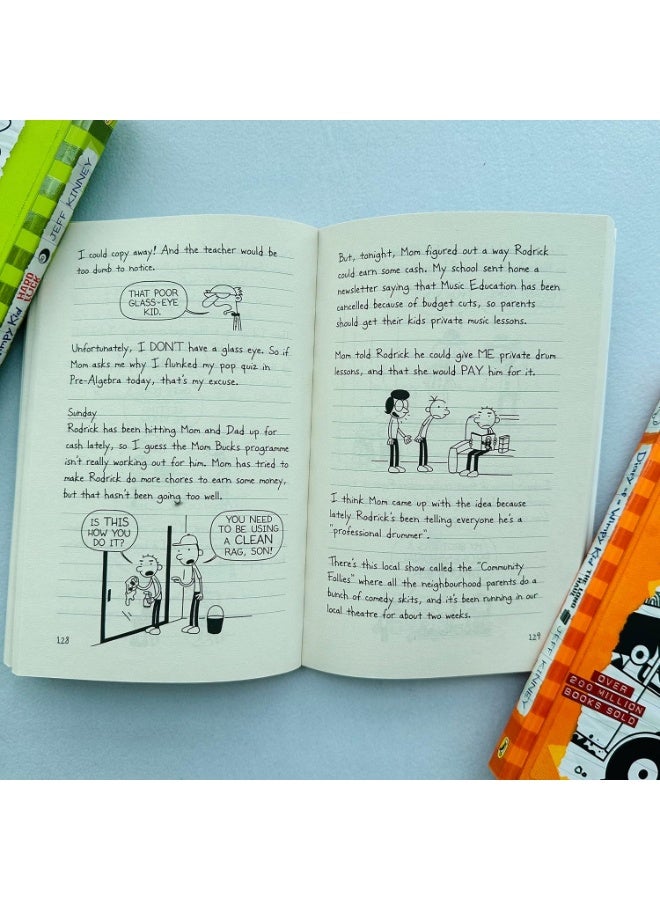 JEFF KINNEY
HARD
LUCK
Wimpy Kid
I could copy away! And the teacher would be
too dumb to notice.
THAT POOR
GLASS-EYE
KID.
Unfortunately, I DON'T have a glass eye. So if
Mom asks me why I flunked my pop quiz in
Pre-Algebra today, that's my excuse.
Sunday
Rodrick has been hitting Mom and Dad up for
cash lately, so I guess the Mom Bucks programme
isn't really working out for him. Mom has tried to
make Rodrick do more chores to earn some money,
but that hasn't been going too well.
IS THIS
HOW YOU
DO IT?
YOU NEED
TO BE USING
A CLEAN
RAG, SON!
128
But, tonight, Mom figured out a way Rodrick
could earn some cash. My school sent home a
newsletter saying that Music Education has been
cancelled because of budget cuts, so parents
should get their kids private music lessons.
Mom told Rodrick he could give ME private drum
lessons, and that she would PAY him for it.
I think Mom came up with the idea because
lately Rodrick's been telling everyone he's a
"professional drummer".
There's this local show called the "Community
Follies" where all the neighbourhood parents do a
bunch of comedy skits, and it's been running in our
local theatre for about two weeks.
129
Diary of a Wimpy Kid THE LONG HAUL
JEFF KINNEY
OVER
200 MILLION
BOOKS SOLD